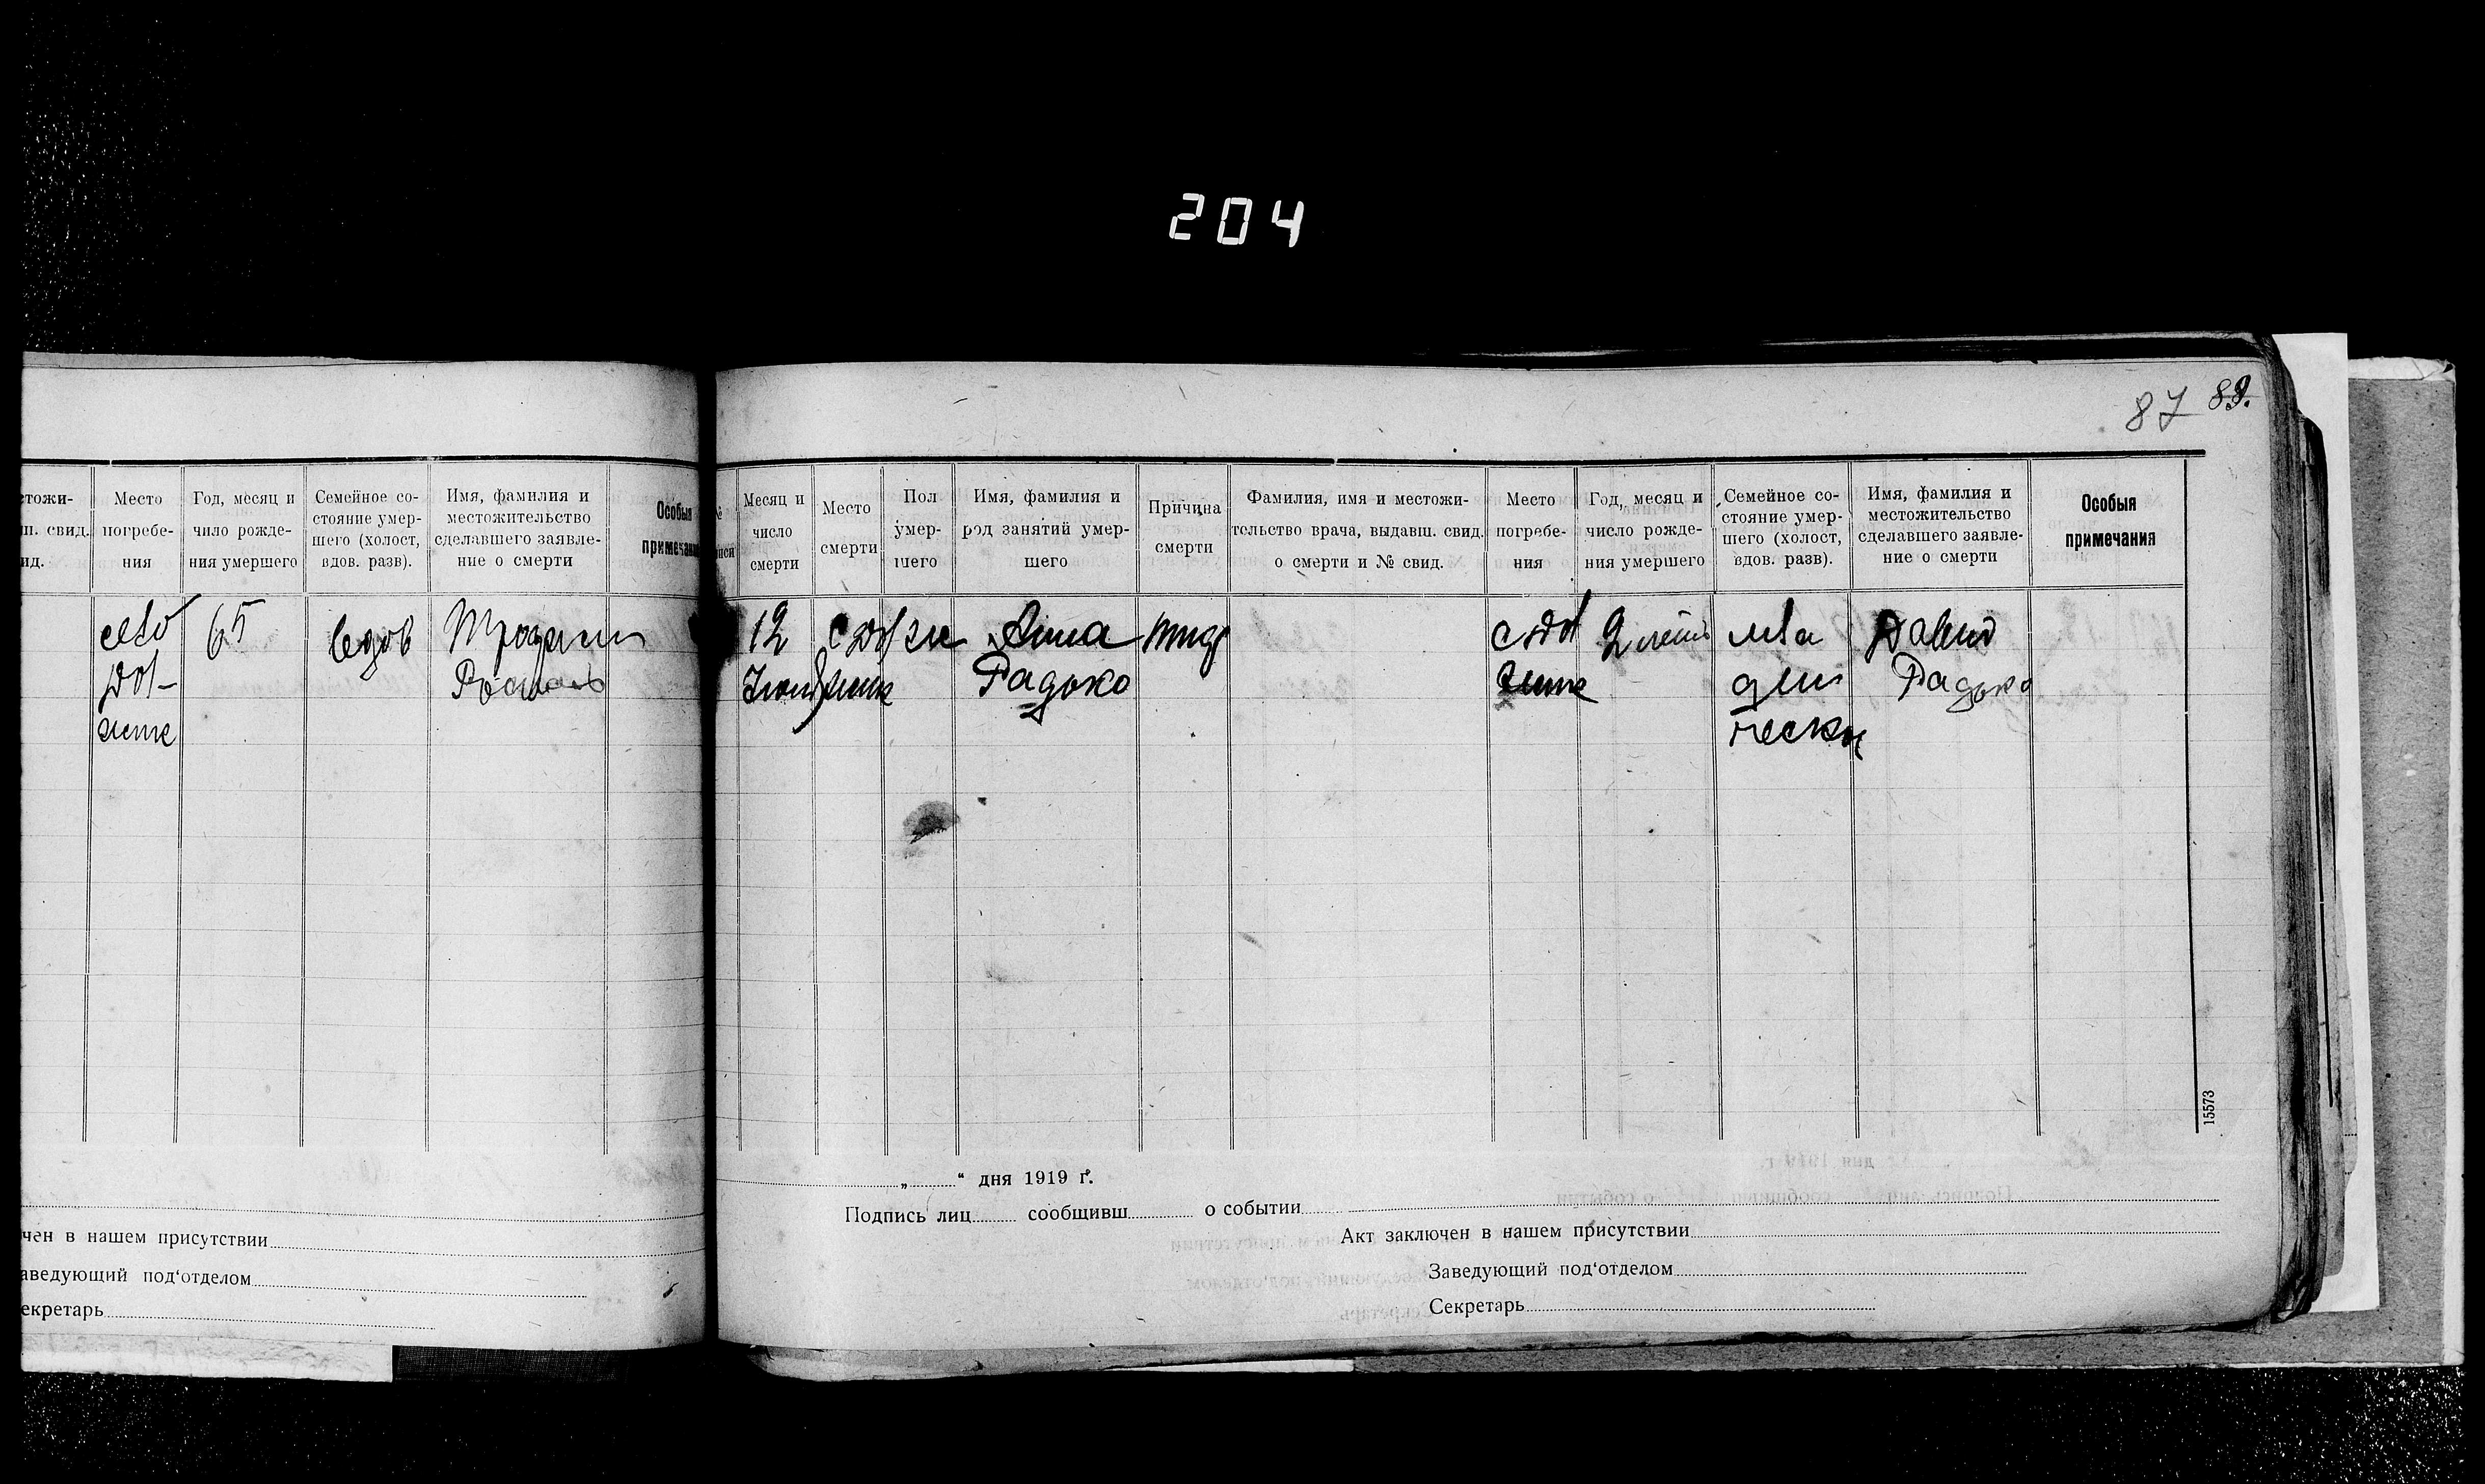 204
87 89.
стожи-
п. свид.
ид.
Место
погребе-
ния
Год, месяц и
чило рожде-
ния умершего
Семейное со-
стояние умер-
шего (холост,
вдов. разв).
Имя, фамилия и
местожительство
сделавшего заявле-
ние о смерти
Особыя
примечания
65
вдов
чен в нашем присутствии
аведующий под'отделом
екретарь
№
писи
Месяц и
число
смерти
Место
смерти
Пол
умер-
шего
Имя, фамилия и
род занятий умер-
шего
Причина
смерти
Фамилия, имя и местожи-
тельство врача, выдавш. свид.
о смерти и № свид.
Место
погребе-
ния
Год, месяц и
число рожде-
ния умершего
Семейное со-
стояние умер-
шего (холост,
вдов. разв).
Имя, фамилия и
местожительство
сделавшего заявле-
ние о смерти
Особыя
примечания
12
Анна
Радько
тиф
мла
ден
чески
Давид
Радько
„ “ дня 1919 г.
Подпись лиц сообщивш о событии
Акт заключен в нашем присутствии
Заведующий под'отделом
Секретарь
15573